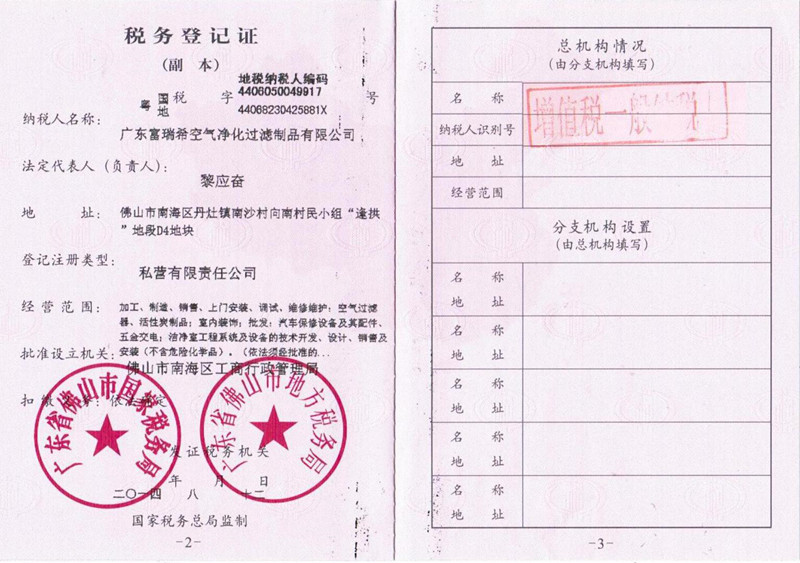 税务登记证
(副 本)
地税纳税人编码
4406050049917
粤 国 税 字 号
地 44068230425881X
纳税人名称:
广东富瑞希空气净化过滤制品有限公司
法定代表人(负责人):
黎应奋
地 址: 佛山市南海区丹灶镇南沙村向南村民小组“逢拱
”地段D4地块
登记注册类型:
私营有限责任公司
经营范围: 加工、制造、销售、上门安装、调试、维修维护:空气过滤
器、活性炭制品;室内装饰;批发:汽车保修设备及其配件、
五金交电;洁净室工程系统及设备的技术开发、设计、销售及
安装(不含危险化学品)。(依法须经批准的...
批准设立机关: 佛山市南海区工商行政管理局
扣缴义务: 依法确定
广东省佛山市国家税务局
广东省佛山市地方税务局
发证税务机关
年 月 日
二〇一四 八 十二
国家税务总局监制
-2-
总机构情况
(由分支机构填写)
名 称
增值税一般纳税人
纳税人识别号
地 址
经营范围
分支机构设置
(由总机构填写)
名 称
地 址
名 称
地 址
名 称
地 址
名 称
地 址
名 称
地 址
-3-